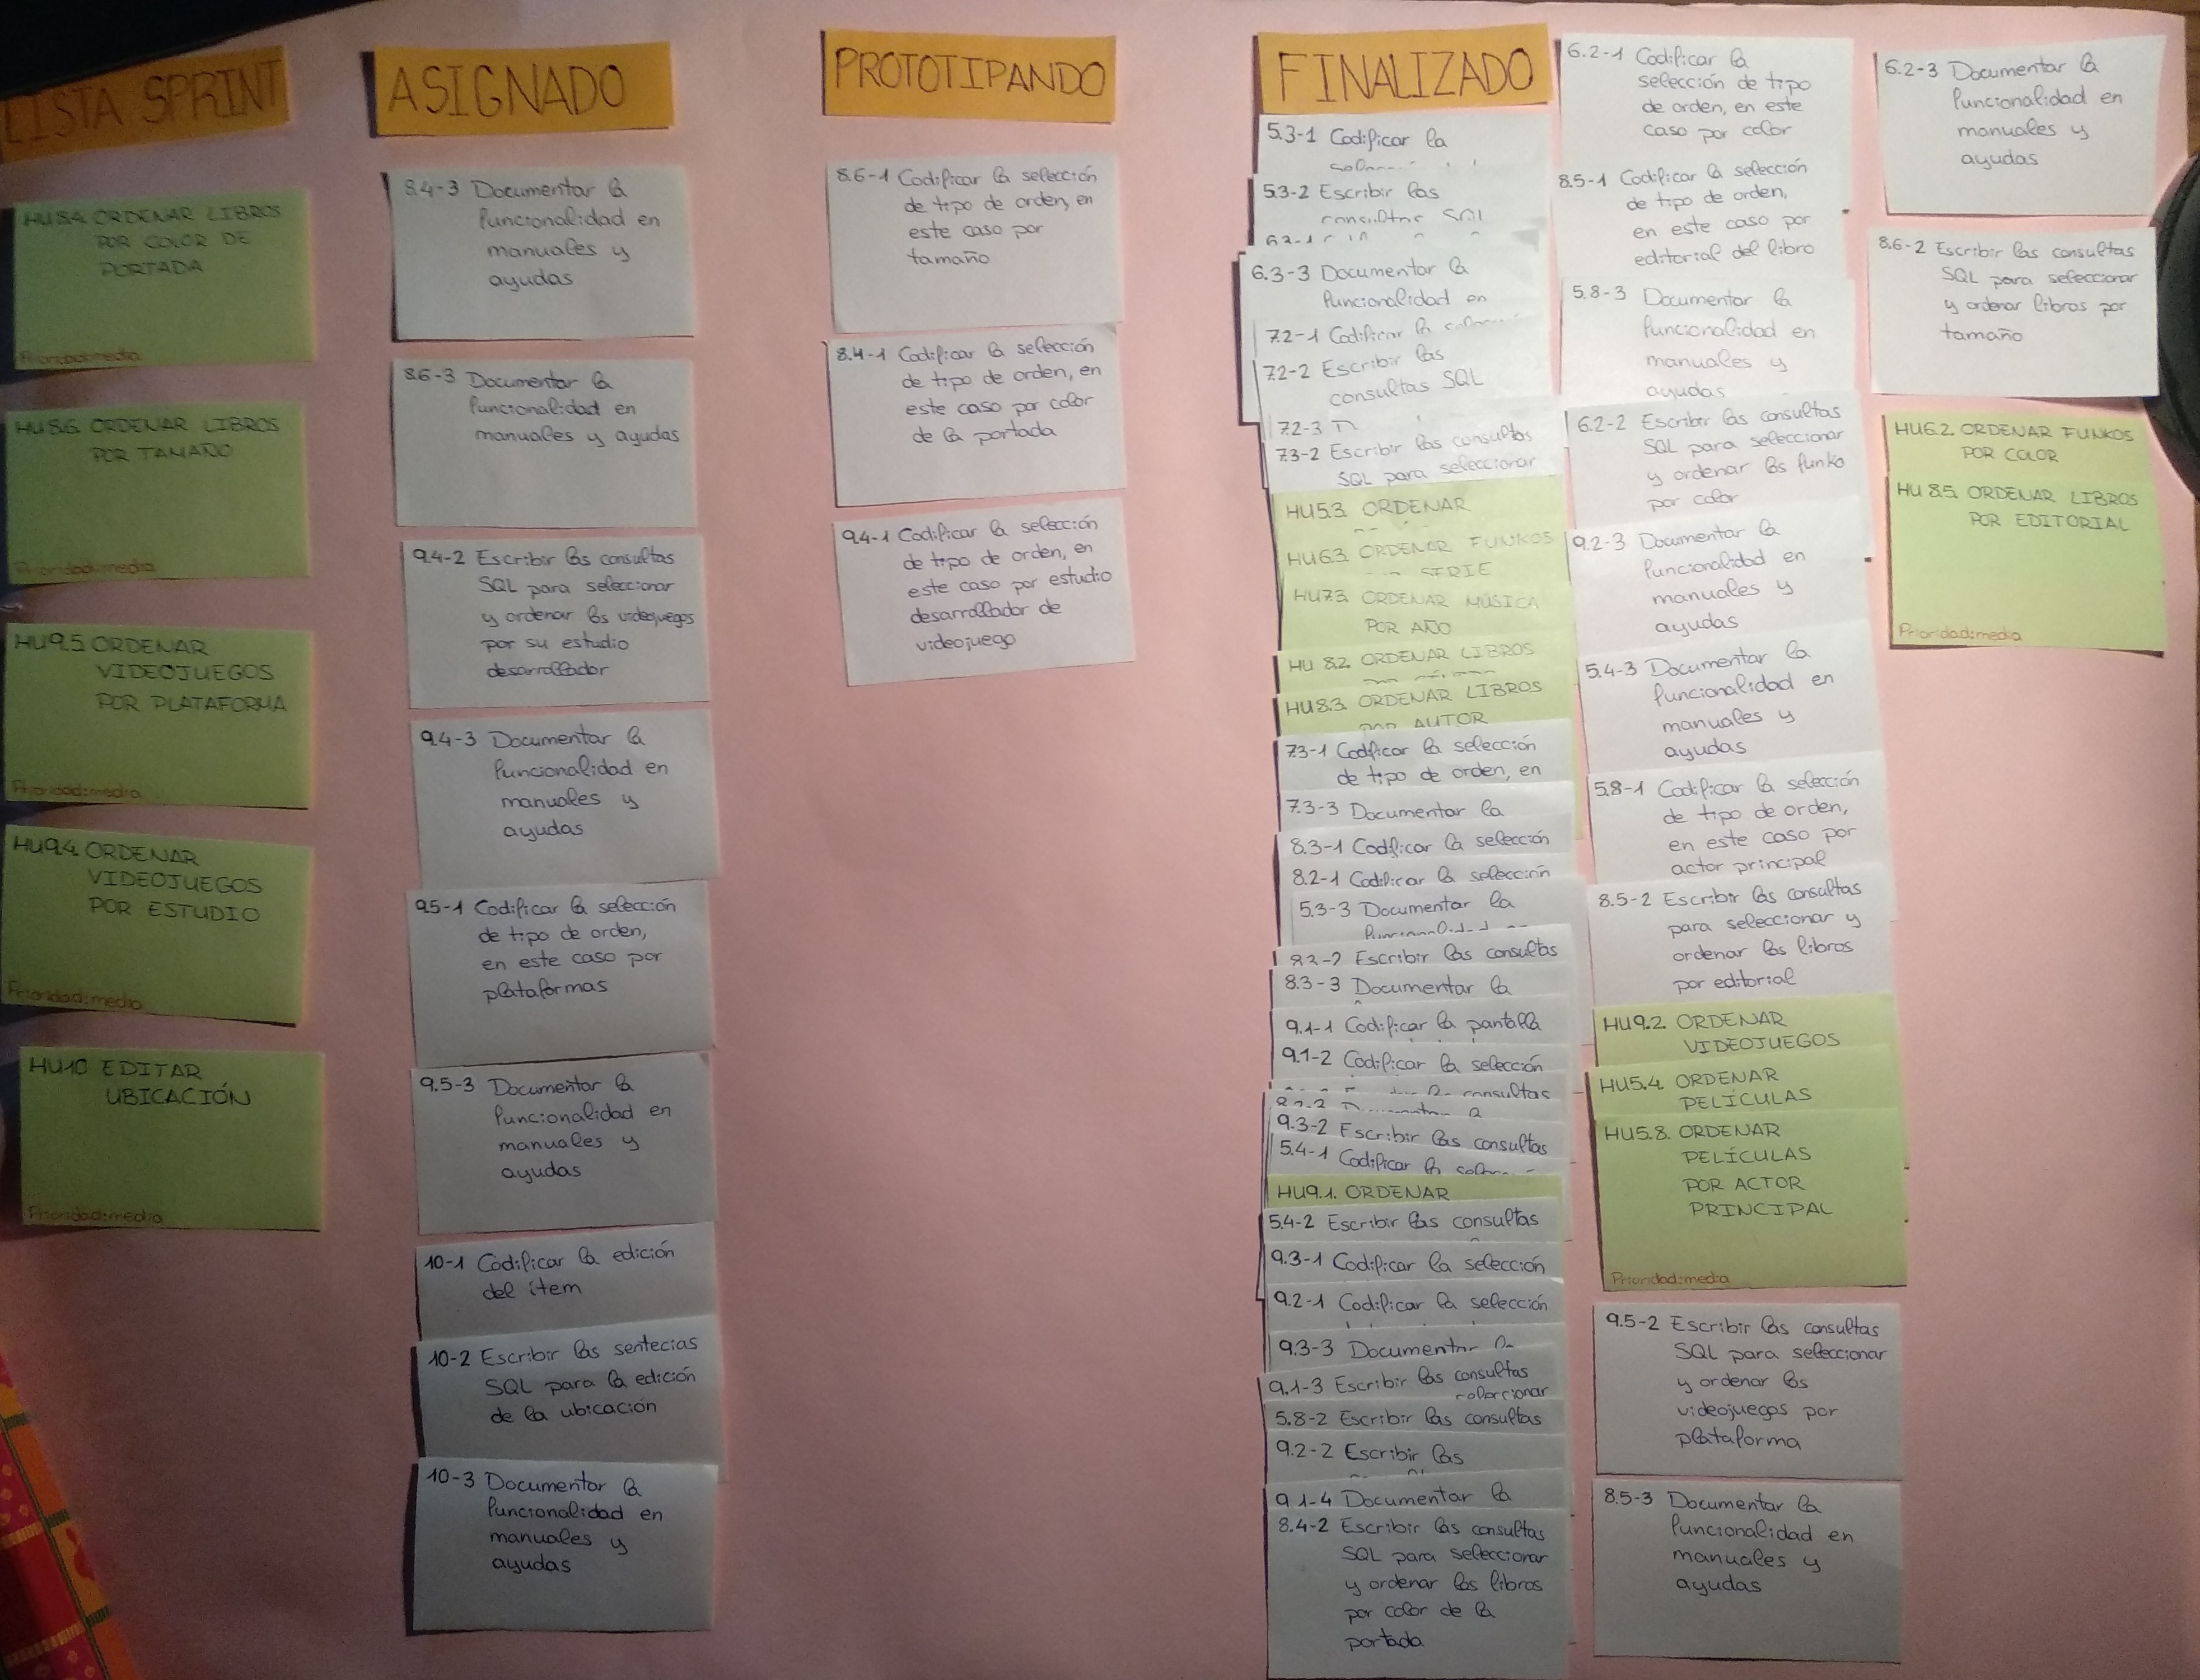 LISTA SPRINT
HU8.4. ORDENAR LIBROS
POR COLOR DE
PORTADA
Prioridad:media
HU8.6. ORDENAR LIBROS
POR TAMAÑO
Prioridad:media
HU9.5. ORDENAR
VIDEOJUEGOS
POR PLATAFORMA
Prioridad:media
HU9.4. ORDENAR
VIDEOJUEGOS
POR ESTUDIO
Prioridad:media
HU10 EDITAR
UBICACIÓN
Prioridad:media
ASIGNADO
8.4-3 Documentar la
funcionalidad en
manuales y
ayudas
8.6-3 Documentar la
funcionalidad en
manuales y ayudas
9.4-2 Escribir las consultas
SQL para seleccionar
y ordenar los videojuegos
por su estudio
desarrollador
9.4-3 Documentar la
funcionalidad en
manuales y
ayudas
9.5-1 Codificar la selección
de tipo de orden,
en este caso por
plataformas
9.5-3 Documentar la
funcionalidad en
manuales y
ayudas
10-1 Codificar la edición
del ítem
10-2 Escribir las sentecias
SQL para la edición
de la ubicación
10-3 Documentar la
funcionalidad en
manuales y
ayudas
PROTOTIPANDO
8.6-1 Codificar la selección
de tipo de orden, en
este caso por
tamaño
8.4-1 Codificar la selección
de tipo de orden, en
este caso por color
de la portada
9.4-1 Codificar la selección
de tipo de orden, en
este caso por estudio
desarrollador de
videojuego
FINALIZADO
5.3-1 Codificar la
5.3-2 Escribir las
consultas SQL
6.3-3 Documentar la
funcionalidad en
7.2-1 Codificar la
7.2-2 Escribir las
consultas SQL
7.2-3
7.3-2 Escribir las consultas
SQL para seleccionar
HU5.3. ORDENAR
HU6.3. ORDENAR FUNKOS
SERIE
HU7.3. ORDENAR MÚSICA
POR AÑO
HU 8.2. ORDENAR LIBROS
HU8.3. ORDENAR LIBROS
POR AUTOR
7.3-1 Codificar la selección
de tipo de orden, en
7.3-3 Documentar la
8.3-1 Codificar la selección
8.2-1 Codificar la selección
5.3-3 Documentar la
funcionalidad
Escribir las consultas
8.3-3 Documentar la
9.1-1 Codificar la pantalla
9.1-2 Codificar la selección
consultas
9.3-2 Escribir las consultas
5.4-1 Codificar la
HU9.1. ORDENAR
5.4-2 Escribir las consultas
9.3-1 Codificar la selección
9.2-1 Codificar la selección
9.3-3 Documentar la
9.1-3 Escribir las consultas
seleccionar
5.8-2 Escribir las consultas
9.2-2 Escribir las
9.1-4 Documentar la
8.4-2 Escribir las consultas
SQL para seleccionar
y ordenar los libros
por color de la
portada
6.2-1 Codificar la
selección de tipo
de orden, en este
caso por color
8.5-1 Codificar la selección
de tipo de orden,
en este caso por
editorial del libro
5.8-3 Documentar la
funcionalidad en
manuales y
ayudas
6.2-2 Escribir las consultas
SQL para seleccionar
y ordenar los funko
por color
9.2-3 Documentar la
funcionalidad en
manuales y
ayudas
5.4-3 Documentar la
funcionalidad en
manuales y
ayudas
5.8-1 Codificar la selección
de tipo de orden,
en este caso por
actor principal
8.5-2 Escribir las consultas
para seleccionar y
ordenar los libros
por editorial
HU9.2. ORDENAR
VIDEOJUEGOS
HU5.4. ORDENAR
PELÍCULAS
HU5.8. ORDENAR
PELÍCULAS
POR ACTOR
PRINCIPAL
Prioridad:media
9.5-2 Escribir las consultas
SQL para seleccionar
y ordenar los
videojuegos por
plataforma
8.5-3 Documentar la
funcionalidad en
manuales y
ayudas
6.2-3 Documentar la
funcionalidad en
manuales y
ayudas
8.6-2 Escribir las consultas
SQL para seleccionar
y ordenar libros por
tamaño
HU6.2. ORDENAR FUNKOS
POR COLOR
HU 8.5. ORDENAR LIBROS
POR EDITORIAL
Prioridad:media